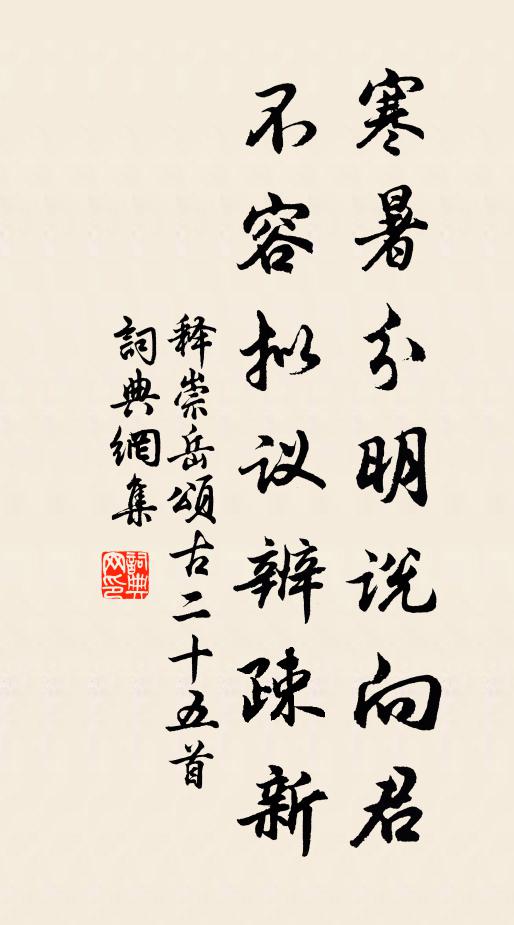 寒暑分明説向君
不容拟议辨疎新
释崇岳頌古二十五首
詞典網集
詞典网印